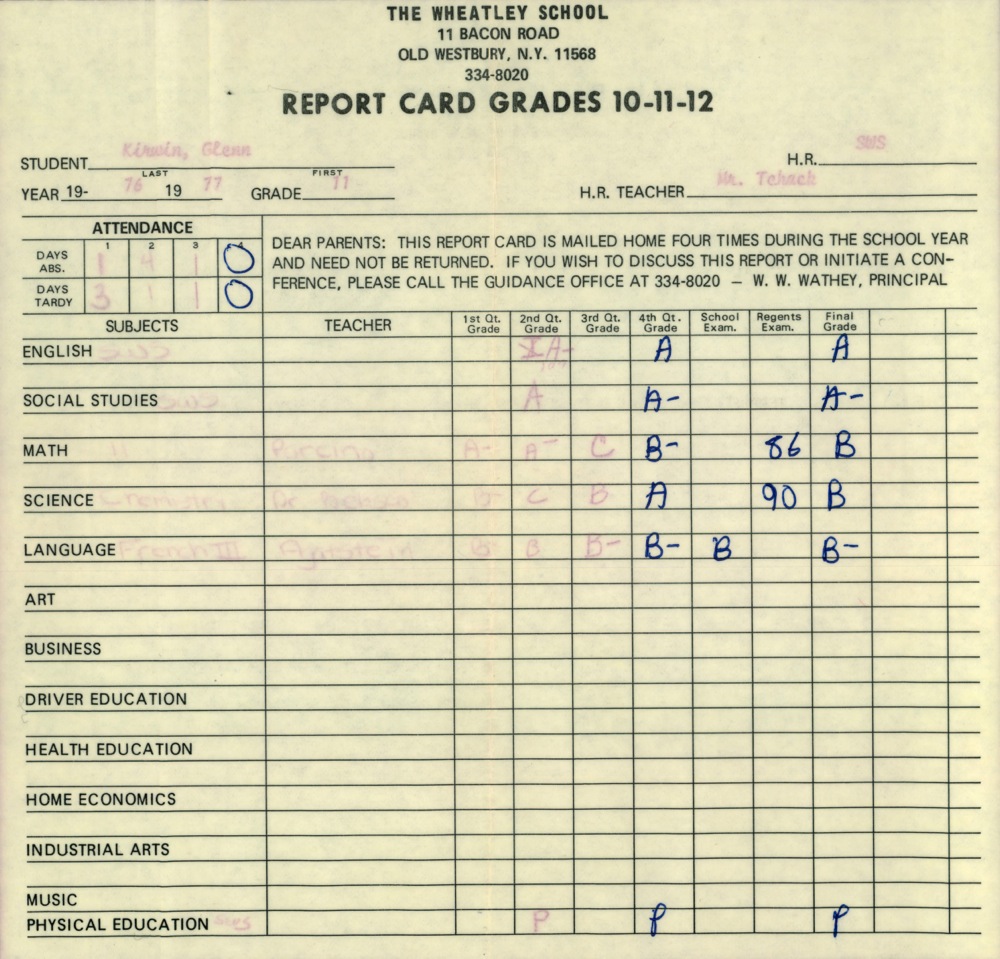 THE WHEATLEY SCHOOL
11 BACON ROAD
OLD WESTBURY, N.Y. 11568
334-8020
REPORT CARD GRADES 10-11-12
STUDENT Kirwin, Glenn H.R. SWS
LAST FIRST
YEAR 19- 76 19 77 GRADE 11 H.R. TEACHER Mr. Tchack
ATTENDANCE
1 2 3 4
DAYS ABS. 1 4 1 0
DAYS TARDY 3 1 1 0
DEAR PARENTS: THIS REPORT CARD IS MAILED HOME FOUR TIMES DURING THE SCHOOL YEAR
AND NEED NOT BE RETURNED. IF YOU WISH TO DISCUSS THIS REPORT OR INITIATE A CON-
FERENCE, PLEASE CALL THE GUIDANCE OFFICE AT 334-8020 – W. W. WATHEY, PRINCIPAL
SUBJECTS TEACHER 1st Qt. Grade 2nd Qt. Grade 3rd Qt. Grade 4th Qt. Grade School Exam. Regents Exam. Final Grade
ENGLISH SWS A- A A
SOCIAL STUDIES SWS A A- A-
MATH 11 A- A- C B- 86 B
SCIENCE Chemistry B- C B A 90 B
LANGUAGE French III B B B- B- B B-
ART
BUSINESS
DRIVER EDUCATION
HEALTH EDUCATION
HOME ECONOMICS
INDUSTRIAL ARTS
MUSIC
PHYSICAL EDUCATION SWS P P P